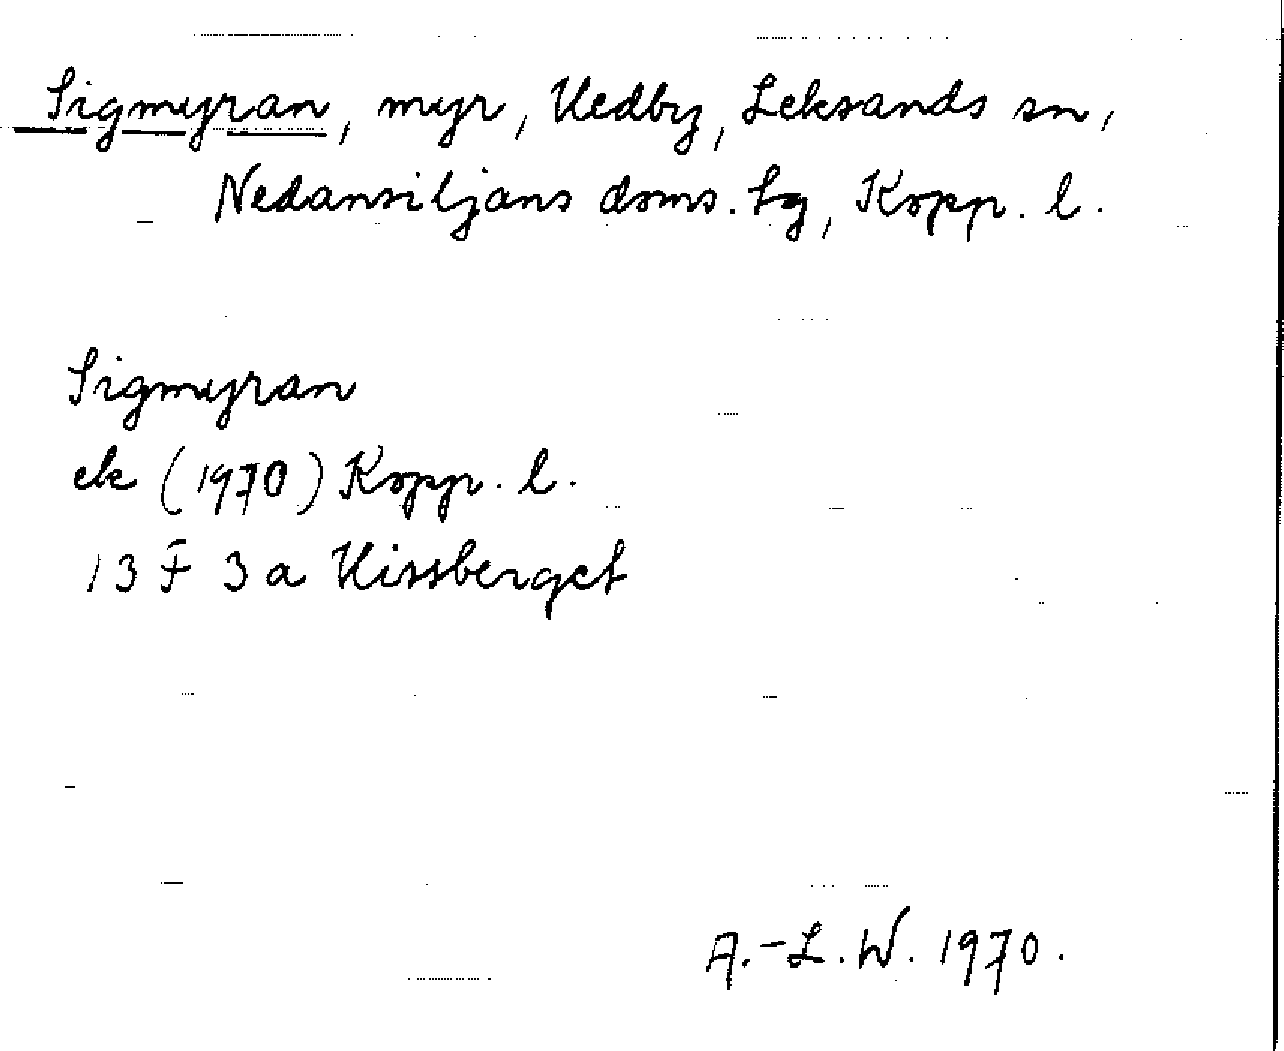 Sigmyran, myr, Hedby, Leksands sn,
Nedansiljans doms. tg, Kopp. l.
Sigmyran
ek (1970) Kopp. l.
13 F 3a Hissberget
A.-L. W. 1970.